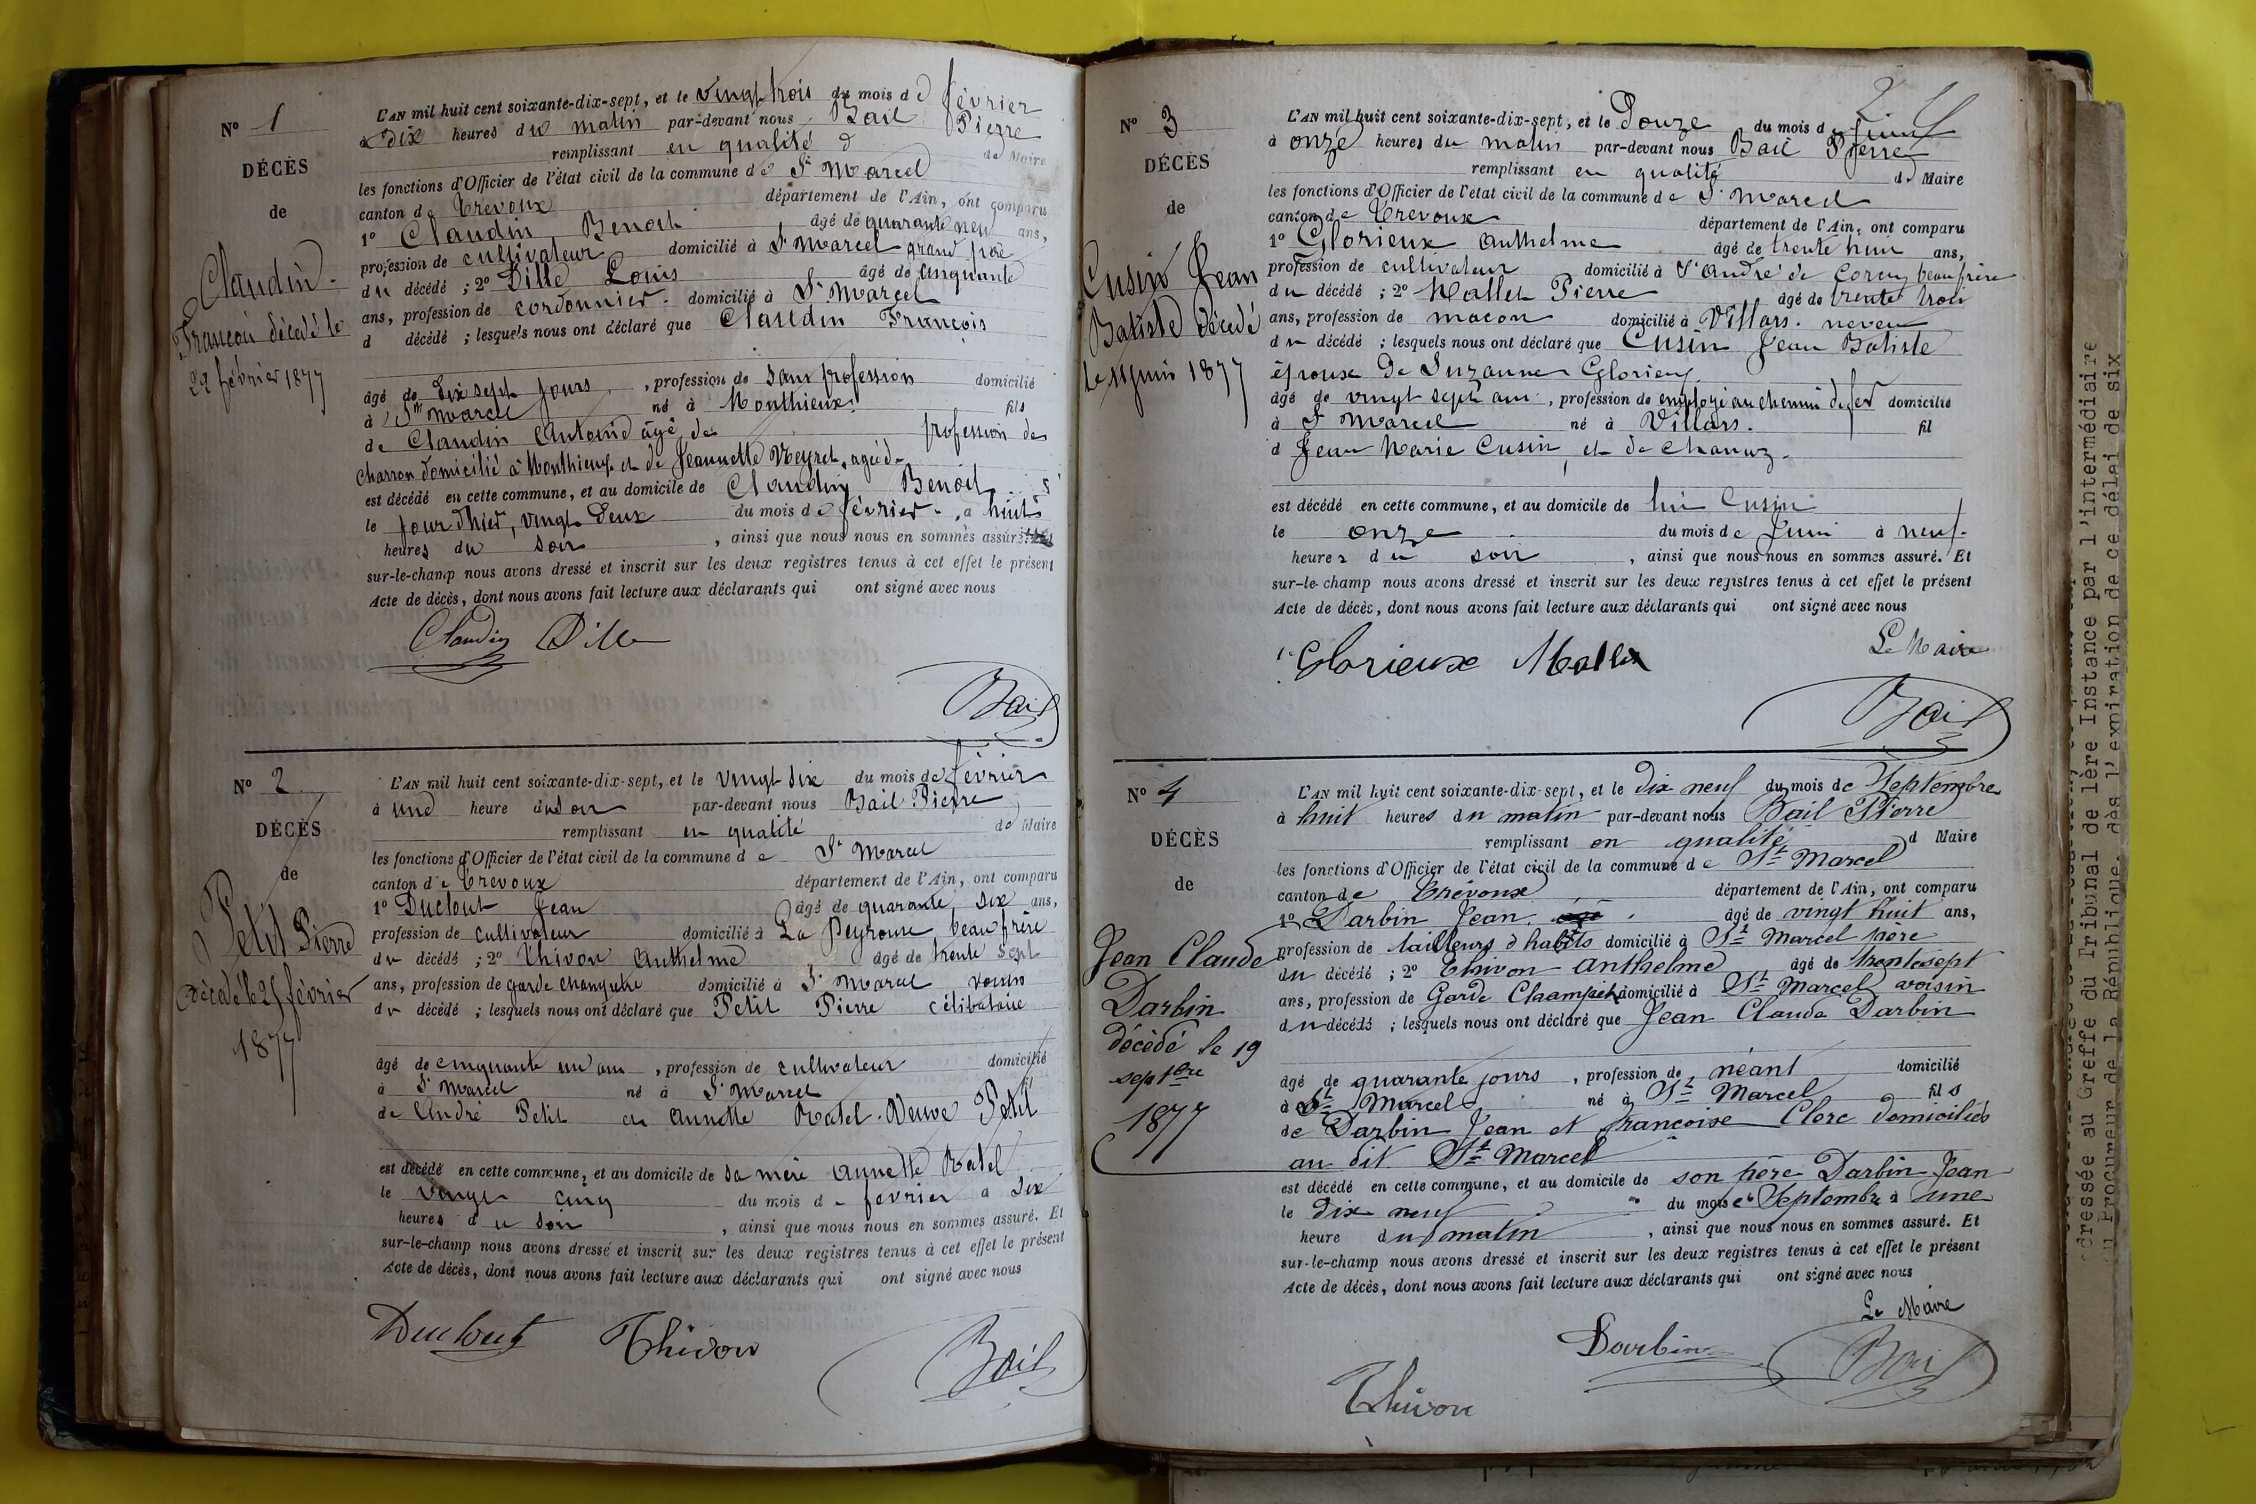 Nº 1
DÉCÈS
de
Claudin
François décédé le
22 février 1877
L'AN mil huit cent soixante-dix-sept, et le vingt trois du mois de février
à dix heures du matin par-devant nous Bail Pierre
remplissant en qualité d de Maire
les fonctions d'Officier de l'état civil de la commune de St Marcel
canton de Trevoux département de l'Ain, ont comparu
1º Claudin Benoit âgé de quarante neuf ans,
profession de cultivateur domicilié à St Marcel grand père
du décédé ; 2º Dille Louis âgé de cinquante
ans, profession de cordonnier domicilié à St Marcel
d décédé ; lesquels nous ont déclaré que Claudin François
âgé de dix sept jours, profession de sans profession domicilié
à St Marcel né à Monthieux fils
de Claudin Antoine âgé de profession de
charron domicilié à Monthieux et de Jeannette Meyret, agée de
est décédé en cette commune, et au domicile de Claudin Benoit
le jour d'hier, vingt deux du mois de février, a huit
heures du soir, ainsi que nous nous en sommes assuré
sur-le-champ nous avons dressé et inscrit sur les deux registres tenus à cet effet le présent
Acte de décès, dont nous avons fait lecture aux déclarants qui ont signé avec nous
Claudin Dille
Bail
Nº 2
DÉCÈS
de
Petit Pierre
décédé le 25 février
1877
L'AN mil huit cent soixante-dix-sept, et le vingt six du mois de février
à une heure du soir par-devant nous Bail Pierre
remplissant en qualité de Maire
les fonctions d'Officier de l'état civil de la commune de St Marcel
canton de Trevoux département de l'Ain, ont comparu
1º Duclout Jean âgé de quarante six ans,
profession de cultivateur domicilié à La Peyrouse beau frère
du décédé ; 2º Thivon Anthelme âgé de trente sept
ans, profession de garde champetre domicilié à St Marcel voisin
du décédé ; lesquels nous ont déclaré que Petit Pierre célibataire
âgé de cinquante un ans, profession de cultivateur domicilié
à St Marcel né à St Marcel fil
de André Petit et Annette Ratel Veuve Petit
est décédé en cette commune, et au domicile de sa mère Annette Ratel
le vingt cinq du mois de fevrier a six
heures du soir, ainsi que nous nous en sommes assuré. Et
sur-le-champ nous avons dressé et inscrit sur les deux registres tenus à cet effet le présent
Acte de décès, dont nous avons fait lecture aux déclarants qui ont signé avec nous
Duclout Thivon
Bail
2
Nº 3
DÉCÈS
de
Cusin Jean
Batiste décédé
le 11 juin 1877
L'AN mil huit cent soixante-dix-sept, et le Douze du mois de juin
à onze heures du matin par-devant nous Bail Pierre
remplissant en qualité de Maire
les fonctions d'Officier de l'état civil de la commune de St Marcel
canton de Trevoux département de l'Ain, ont comparu
1º Glorieux Anthelme âgé de trente huit ans,
profession de cultivateur domicilié à St André de Corcy beau frère
du décédé ; 2º Mallet Pierre âgé de trente trois
ans, profession de macon domicilié à Villars. neveu
du décédé ; lesquels nous ont déclaré que Cusin Jean Batiste
époux de Suzanne Glorieux
âgé de vingt sept ans, profession de employé au chemin de fer domicilié
à St Marcel né à Villars. fil
d Jean Marie Cusin et de
est décédé en cette commune, et au domicile de lui Cusin
le onze du mois de Juin à neuf
heures du soir, ainsi que nous nous en sommes assuré. Et
sur-le-champ nous avons dressé et inscrit sur les deux registres tenus à cet effet le présent
Acte de décès, dont nous avons fait lecture aux déclarants qui ont signé avec nous
Glorieux Mallet
Le Maire
Bail
Nº 4
DÉCÈS
de
Jean Claude
Darbin
décédé le 19
septbre
1877
L'AN mil huit cent soixante-dix-sept, et le dix neuf du mois de Septembre
à huit heures du matin par-devant nous Bail Pierre
remplissant en qualité d Maire
les fonctions d'Officier de l'état civil de la commune de St Marcel
canton de Trévoux département de l'Ain, ont comparu
1º Darbin Jean âgé de vingt huit ans,
profession de tailleurs d'habits domicilié à St Marcel père
du décédé ; 2º Thivon Anthelme âgé de trente sept
ans, profession de Garde Champêt domicilié à St Marcel voisin
du décédé ; lesquels nous ont déclaré que Jean Claude Darbin
âgé de quarante jours, profession de néant domicilié
à St Marcel né à St Marcel fils
de Darbin Jean et françoise Clerc domiciliés
au dit St Marcel
est décédé en cette commune, et au domicile de son père Darbin Jean
le dix neuf du mois de Septembre à une
heure du matin, ainsi que nous nous en sommes assuré. Et
sur-le-champ nous avons dressé et inscrit sur les deux registres tenus à cet effet le présent
Acte de décès, dont nous avons fait lecture aux déclarants qui ont signé avec nous
Le Maire
Darbin Bail
Thivon
dressée au Greffe du Tribunal de 1ère Instance par l'intermédiaire
du Procureur de la République, dès l'expiration de ce délai de six